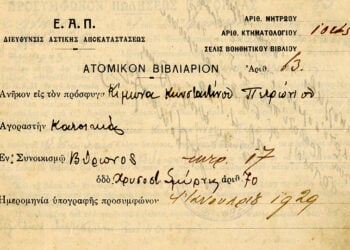 Ε. Α. Π.
ΔΙΕΥΘΥΝΣΙΣ ΑΣΤΙΚΗΣ ΑΠΟΚΑΤΑΣΤΑΣΕΩΣ
ΑΡΙΘ. ΜΗΤΡΩΟΥ
ΑΡΙΘ. ΚΤΗΜΑΤΟΛΟΓΙΟΥ
ΣΕΛΙΣ ΒΟΗΘΗΤΙΚΟΥ ΒΙΒΛΙΟΥ
ΑΤΟΜΙΚΟΝ ΒΙΒΛΙΑΡΙΟΝ Ἀριθ. 63.
Ἀνῆκον εἰς τὸν πρόσφυγα Κίμωνα Κωνσταντίνου
Ἀγοραστὴν Κατοικίας
Ἐν Συνοικισμῷ Βύρωνος τετρ. 17
ὁδὸς Χρυσοσ. Σμύρνης ἀριθ 70
Ἡμερομηνία ὑπογραφῆς προσυμφώνου Ἰανουαρίου 1929